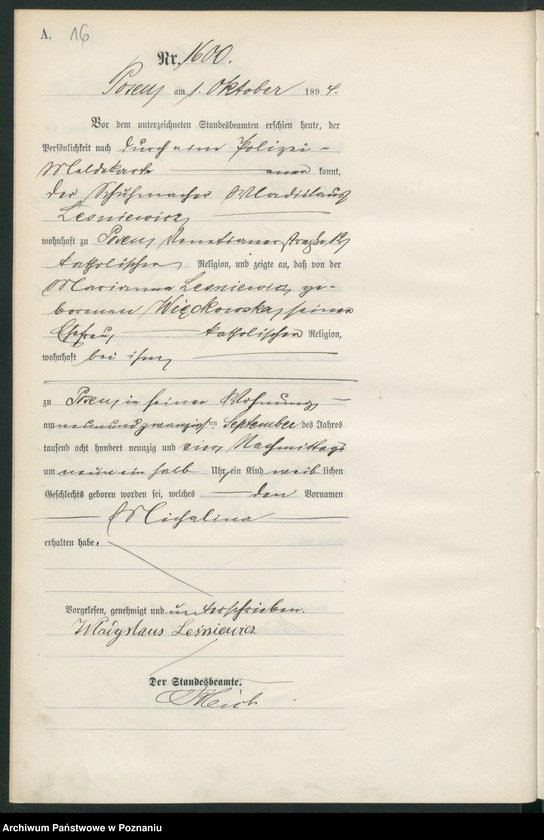 A. 16
Nr. 1600.
Posen am 1. Oktober 1894.
Vor dem unterzeichneten Standesbeamten erschien heute, der
Persönlichkeit nach durch eine Polizei-
Meldekarte aner kannt,
der Schuhmacher Wladislaus
Leśniewicz
wohnhaft zu Posen, Venetianerstraße
katholischer Religion, und zeigte an, daß von der
Marianna Leśniewicz, ge-
borenen Więckowska, seiner
Ehefrau, katholischer Religion,
wohnhaft bei ihm,
zu Posen, in seiner Wohnung,
am neunundzwanzigsten September des Jahres
tausend acht hundert neunzig und vier, Nachmittags
um neun ein halb Uhr, ein Kind weib lichen
Geschlechts geboren worden sei, welches den Vornamen
Michalina
erhalten habe.
Vorgelesen, genehmigt und unterschrieben.
Władysłaus Leśniewicz
Der Standesbeamte.
Archiwum Państwowe w Poznaniu